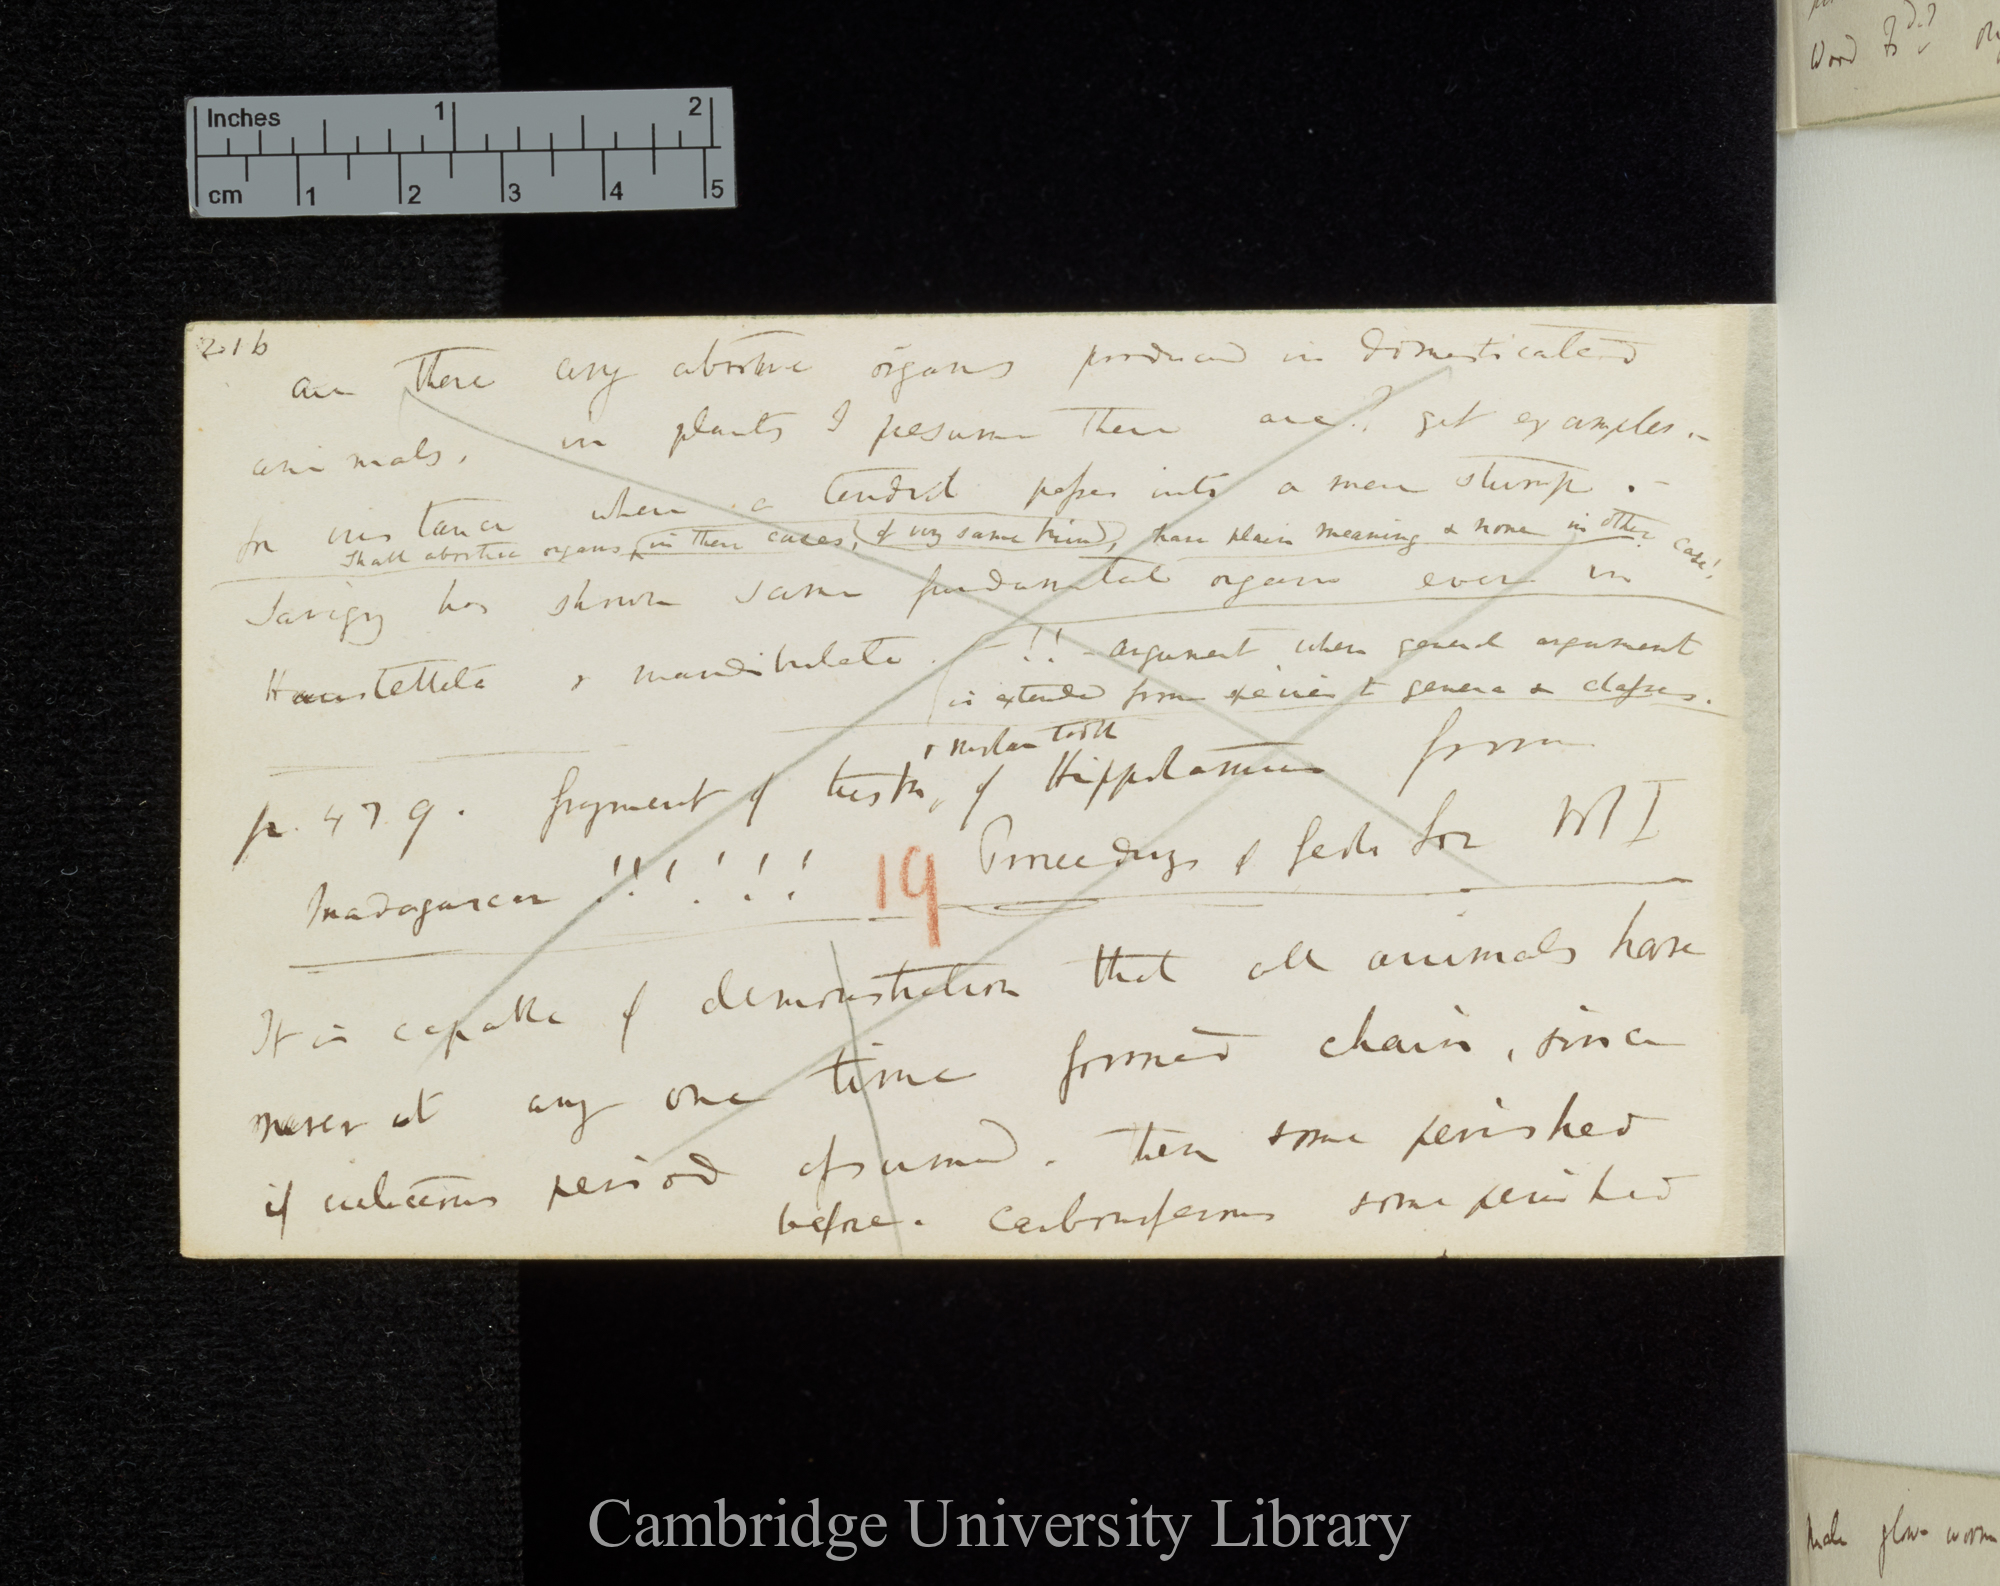 Inches 1 2
cm 1 2 3 4 5
Wood
216
are there any abortive organs produced in domesticated
animals, in plants I presume there are? get examples.—
for instance where a tendril passes into a mere stump.—
Shall abortive organs, (in these cases, (of very same kind), have plain meaning & none in other case!
Savigny has shown same fundamental organs even in
Haustellata & mandibulata. !! — argument when general argument
is extended from species to genera & classes.
& molar tooth
p. 479. fragment of tusk, of Hippopotamus from
Madagascar !!!!!! 19 Proceedings of Geolo Soc Vol I
It is capable of demonstration that all animals have
never at any one time formed chain, since
if cretaceous period assumed. then some perished
before. carboniferous some perished
Male glow worm
Cambridge University Library